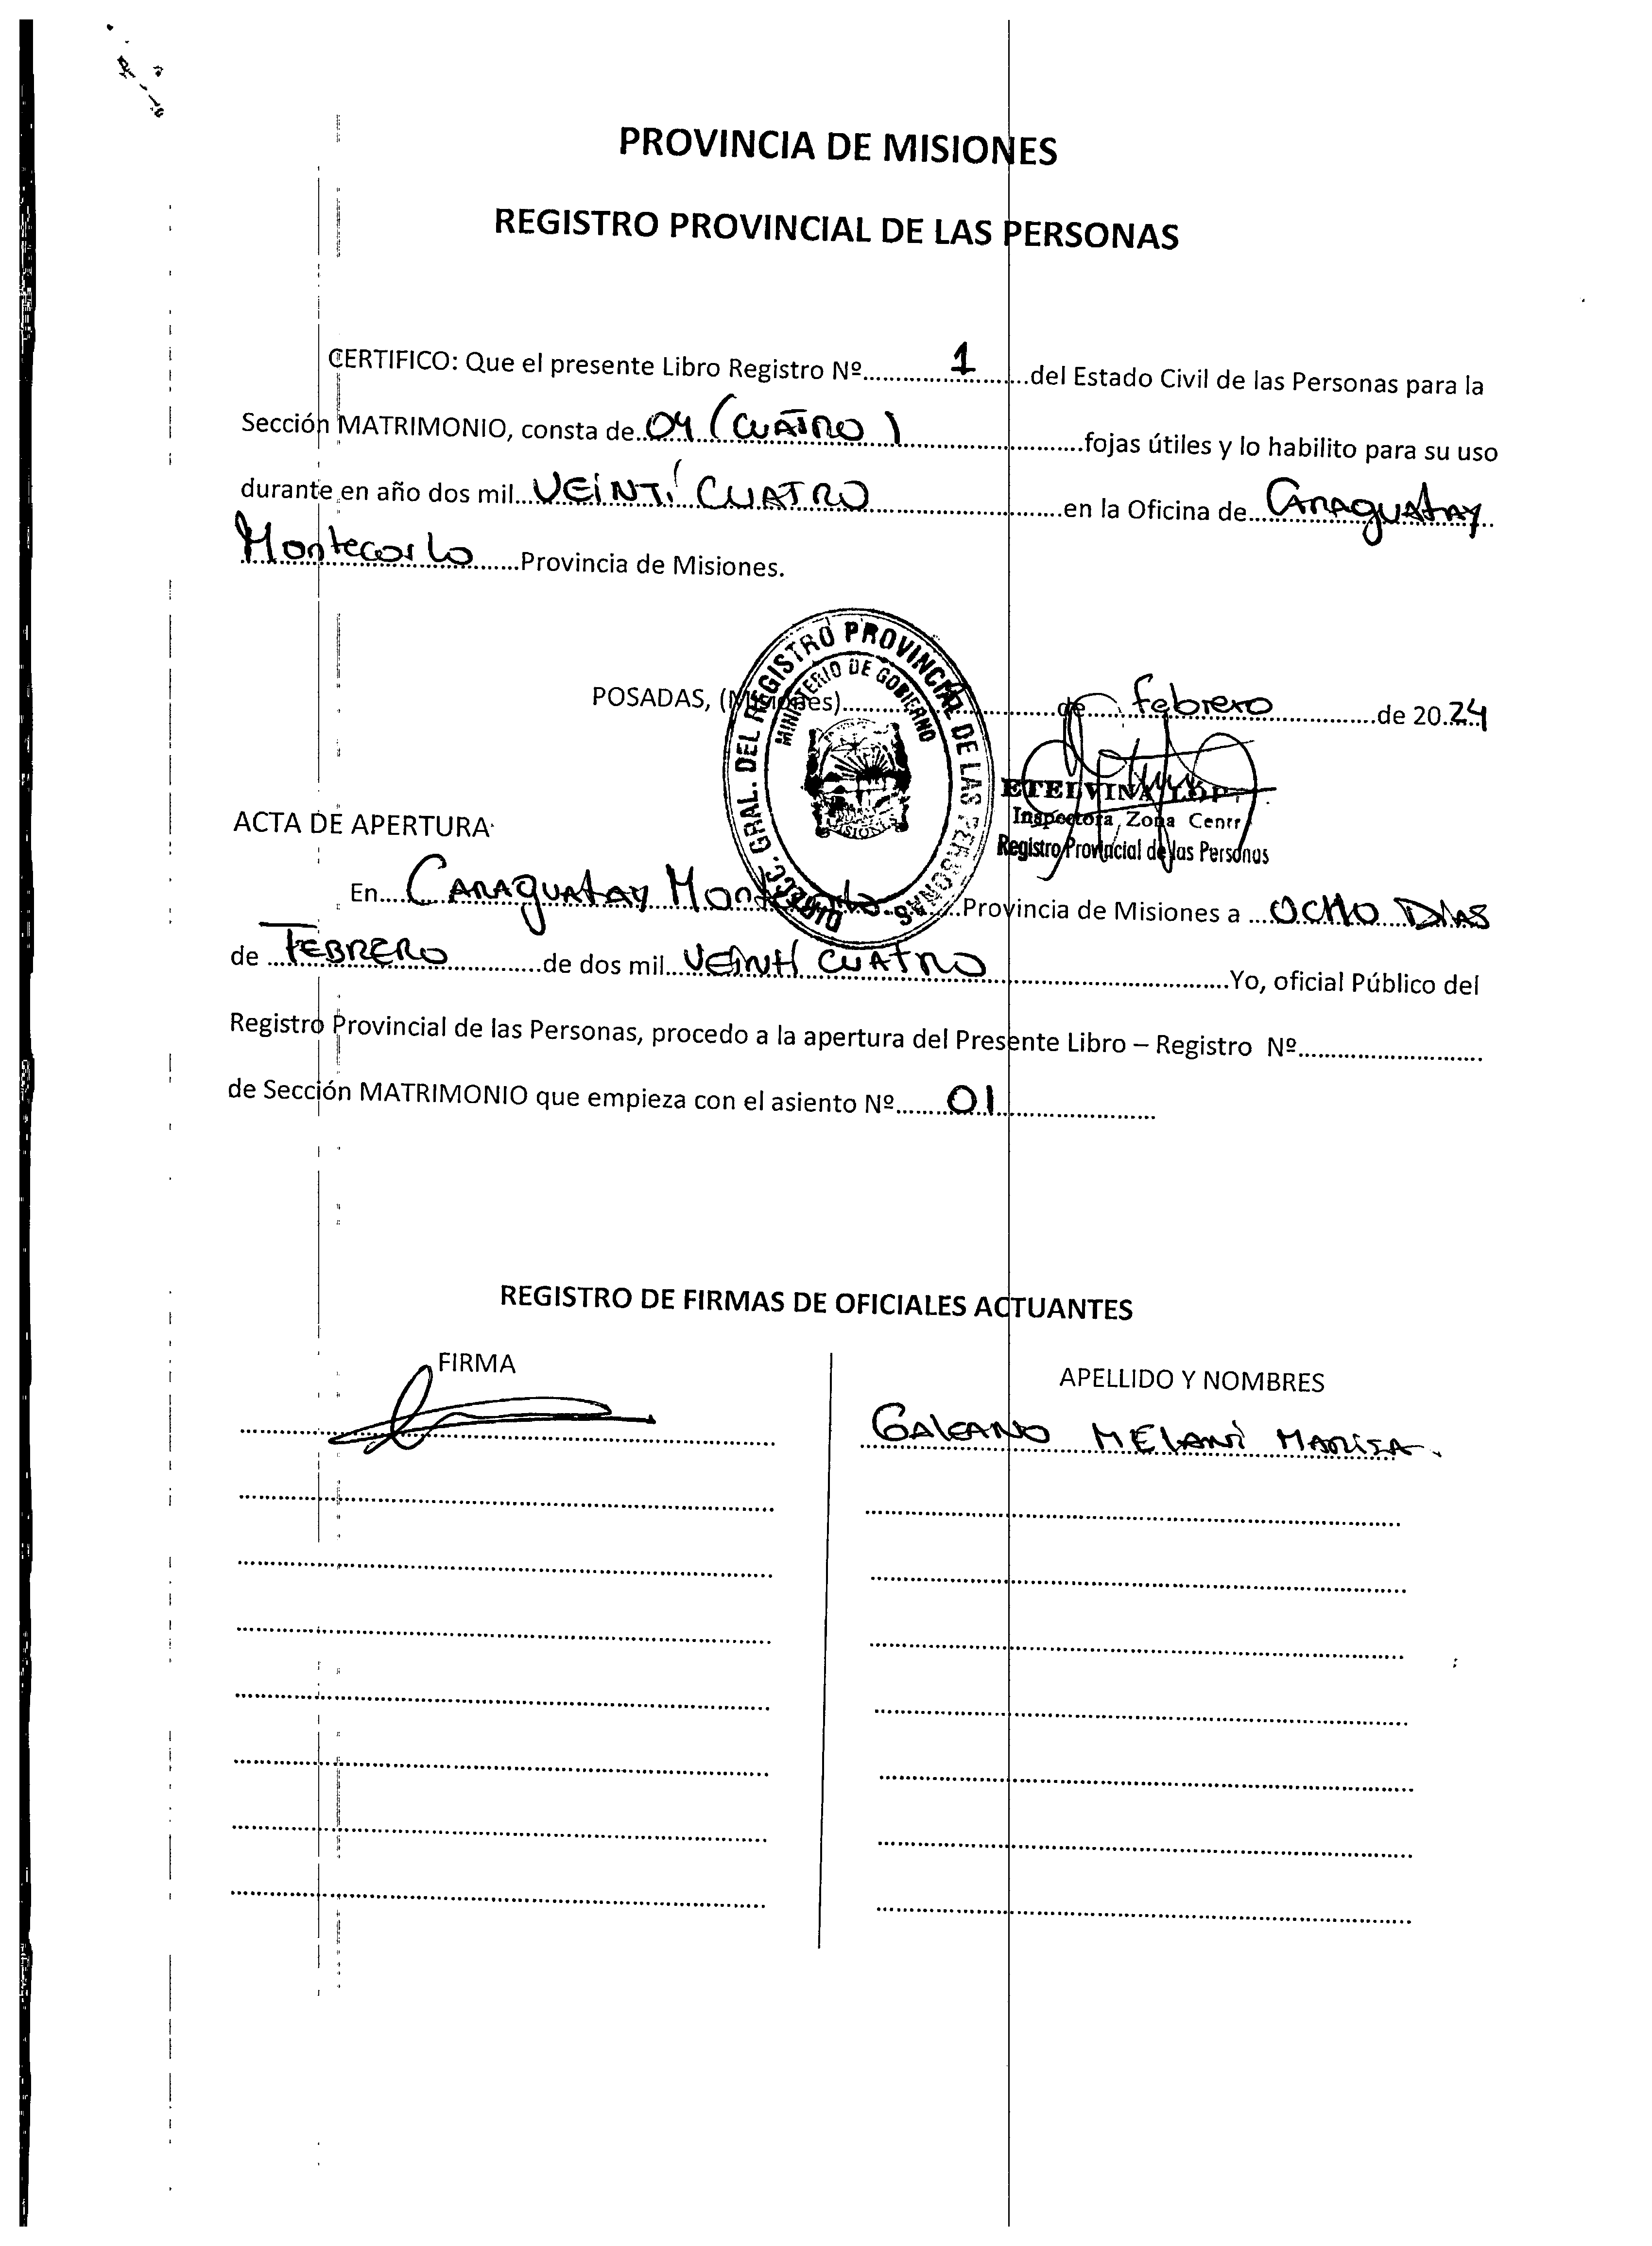 PROVINCIA DE MISIONES
REGISTRO PROVINCIAL DE LAS PERSONAS
CERTIFICO: Que el presente Libro Registro Nº 1 del Estado Civil de las Personas para la
Sección MATRIMONIO, consta de 04 (CUATRO) fojas útiles y lo habilito para su uso
durante en año dos mil VEINTI CUATRO en la Oficina de CARAGUATAY
Montecarlo Provincia de Misiones.
POSADAS, (Misiones) de febrero de 2024
DIRECC. GRAL. DEL REGISTRO PROVINCIAL DE LAS PERSONAS
MINISTERIO DE GOBIERNO
MISIONES
ETELVINA
Inspectora Zona Centr
Registro Provincial de las Personas
ACTA DE APERTURA
En CARAGUATAY Montecarlo Provincia de Misiones a OCHO DIAS
de FEBRERO de dos mil VEINTI CUATRO Yo, oficial Público del
Registro Provincial de las Personas, procedo a la apertura del Presente Libro – Registro Nº
de Sección MATRIMONIO que empieza con el asiento Nº 01
REGISTRO DE FIRMAS DE OFICIALES ACTUANTES
FIRMA
APELLIDO Y NOMBRES
GALEANO MELANI MARISA.